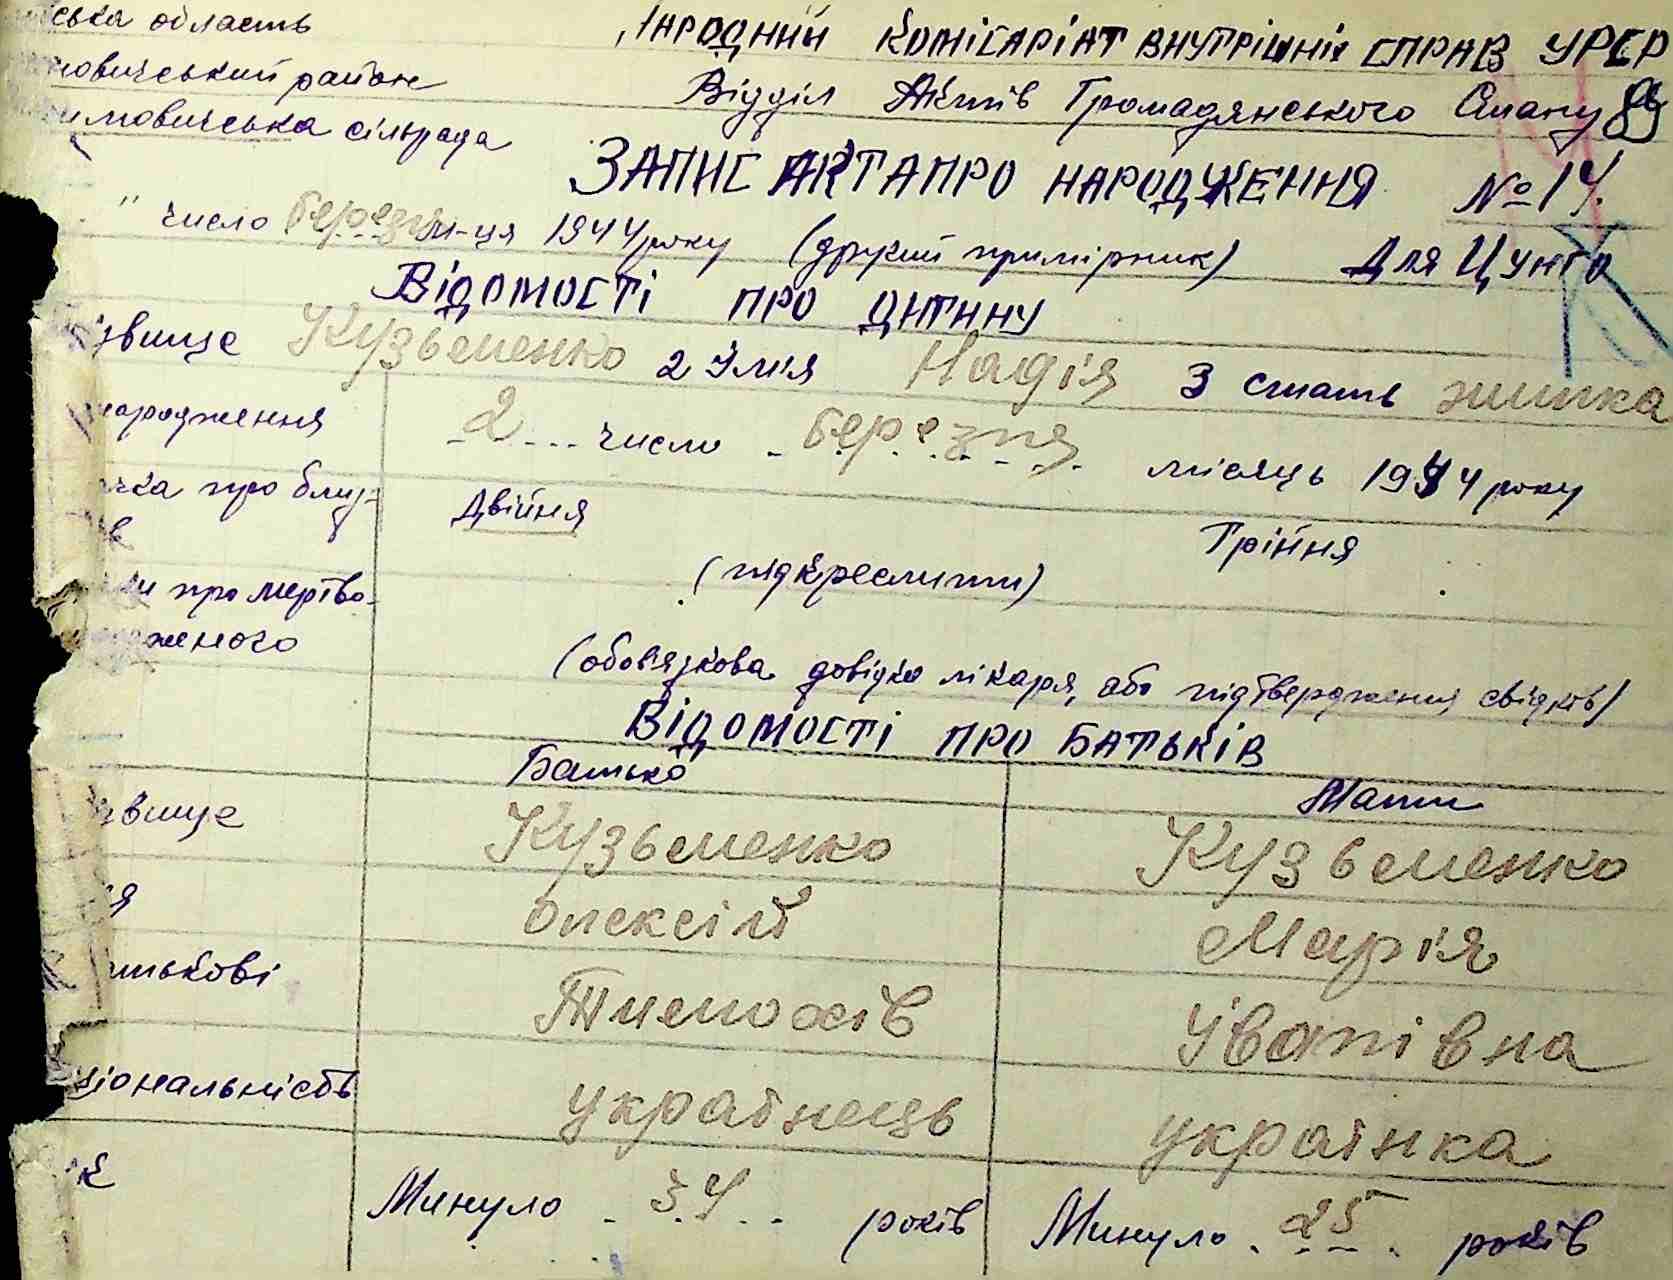 ська область
Народний Комісаріат внутрішніх справ УРСР
новичський район
Відділ Актів Громадянського Стану
имовичська сільрада
89
Запис акта про народження №14.
" число березня м-ця 1944 року (другий примірник) Для Цунго
Відомості про дитину
звище Кузьменко 2 Імія Надія 3 стать жинка
народження 2 число березня місяць 1944 року
чка про близ-
в
Двійня Трійня
(підкреслити)
ки про мертво-
роженого
(обовязкова довідка лікаря, або підтвердження свідків)
Відомості про батьків
Батько Мати
звище Кузьменко Кузьменко
я Олексій Марія
атькові Тимохів Іванівна
ціональність українець українка
ік Минуло 34 років Минуло 25 років